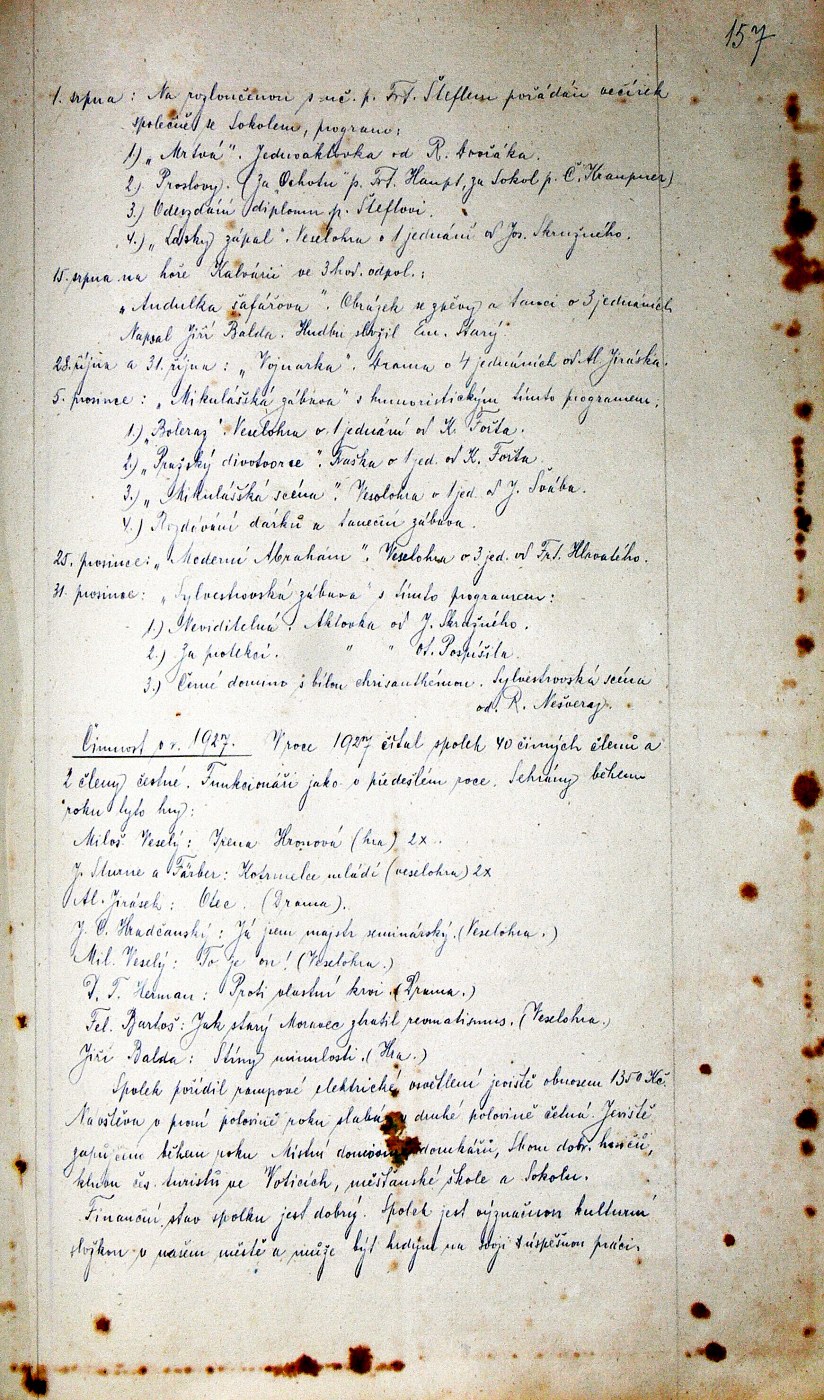 157
1. srpna : Na rozloučenou s uč. p. Frt. Šteflem pořádán večírek
společně se Sokolem, program:
1.) „Mrtvá". Jednoaktovka od R. Dvořáka.
2.) Proslovy. (Za „Ochotu" p. Frt. Haupt, za Sokol p. Č. Kraupner)
3.) Odevzdání diplomu p. Šteflovi.
4.) „Lásky zápal". Veselohra o 1 jednání od Jos. Skružného.
15. srpna na hoře Kalvárii ve 3 hod. odpol.:
„Andulka šafářova". Obrázek se zpěvy a tanci o 3 jednáních
Napsal Jiří Balda. Hudbu složil Em. Starý.
28. října a 31. října : „Vojnarka". Drama o 4 jednáních od Al. Jiráska.
5. prosince : „Mikulášská zábava" s humoristickým tímto programem:
1.) „Boleraz". Veselohra o 1 jednání od K. Fořta.
2.) „Pražský divotvorce". Fraška o 1 jed. od K. Fořta.
3.) „Mikulášská scéna". Veselohra o 1 jed. od J. Švába.
4.) Rozdávání dárků a taneční zábava.
25. prosince: „Moderní Abrahám". Veselohra o 3 jed. od Frt. Hlavatého.
31. prosince: „Sylvestrovská zábava" s tímto programem:
1.) Neviditelná. Aktovka od J. Skružného.
2.) Za protekcí. " " Ot. Pospíšila.
3.) Černé domino s bílou chrisanthémou. Sylvestrovská scéna
od R. Nešveraz.
Činnost v r. 1927. V roce 1927 čítal spolek 40 činných členů a
2 členy čestné. Funkcionáři jako v předešlém roce. Sehrány během
roku tyto hry:
Miloš Veselý : Irena Hronová (hra) 2x.
J. Sturne a Färber : Kotrmelce mládí (veselohra) 2x
Al. Jirásek : Otec. (Drama).
J. C. Hradčanský : Já jsem majstr seminárský. (Veselohra.)
Mil. Veselý : To je on! (Veselohra.)
D. T. Herman : Proti vlastní krvi. (Drama.)
Fel. Bartoš : Jak starý Moravec ztratil revmatismus. (Veselohra.)
Jiří Balda : Stíny minulosti. (Hra.)
Spolek pořídil rampové elektrické osvětlení jeviště obnosem 1350 Kč.
Návštěva v první polovině roku slabá, v druhé polovině četná. Jeviště
zapůjčeno během roku Místní domovin domkářů, Sboru dobr. hasičů,
klubu čes. turistů ve Voticích, měšťanské škole a Sokolu.
Finanční stav spolku jest dobrý. Spolek jest význačnou kulturní
složkou v našem městě a může být hrdým na svoji úspěšnou práci.